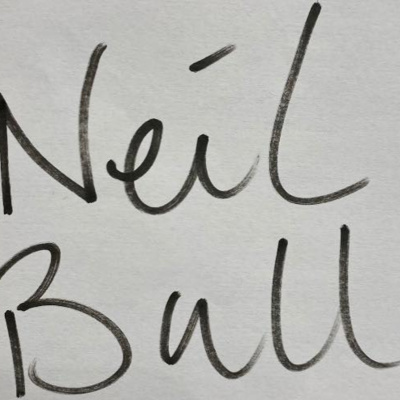 Neil
Ball